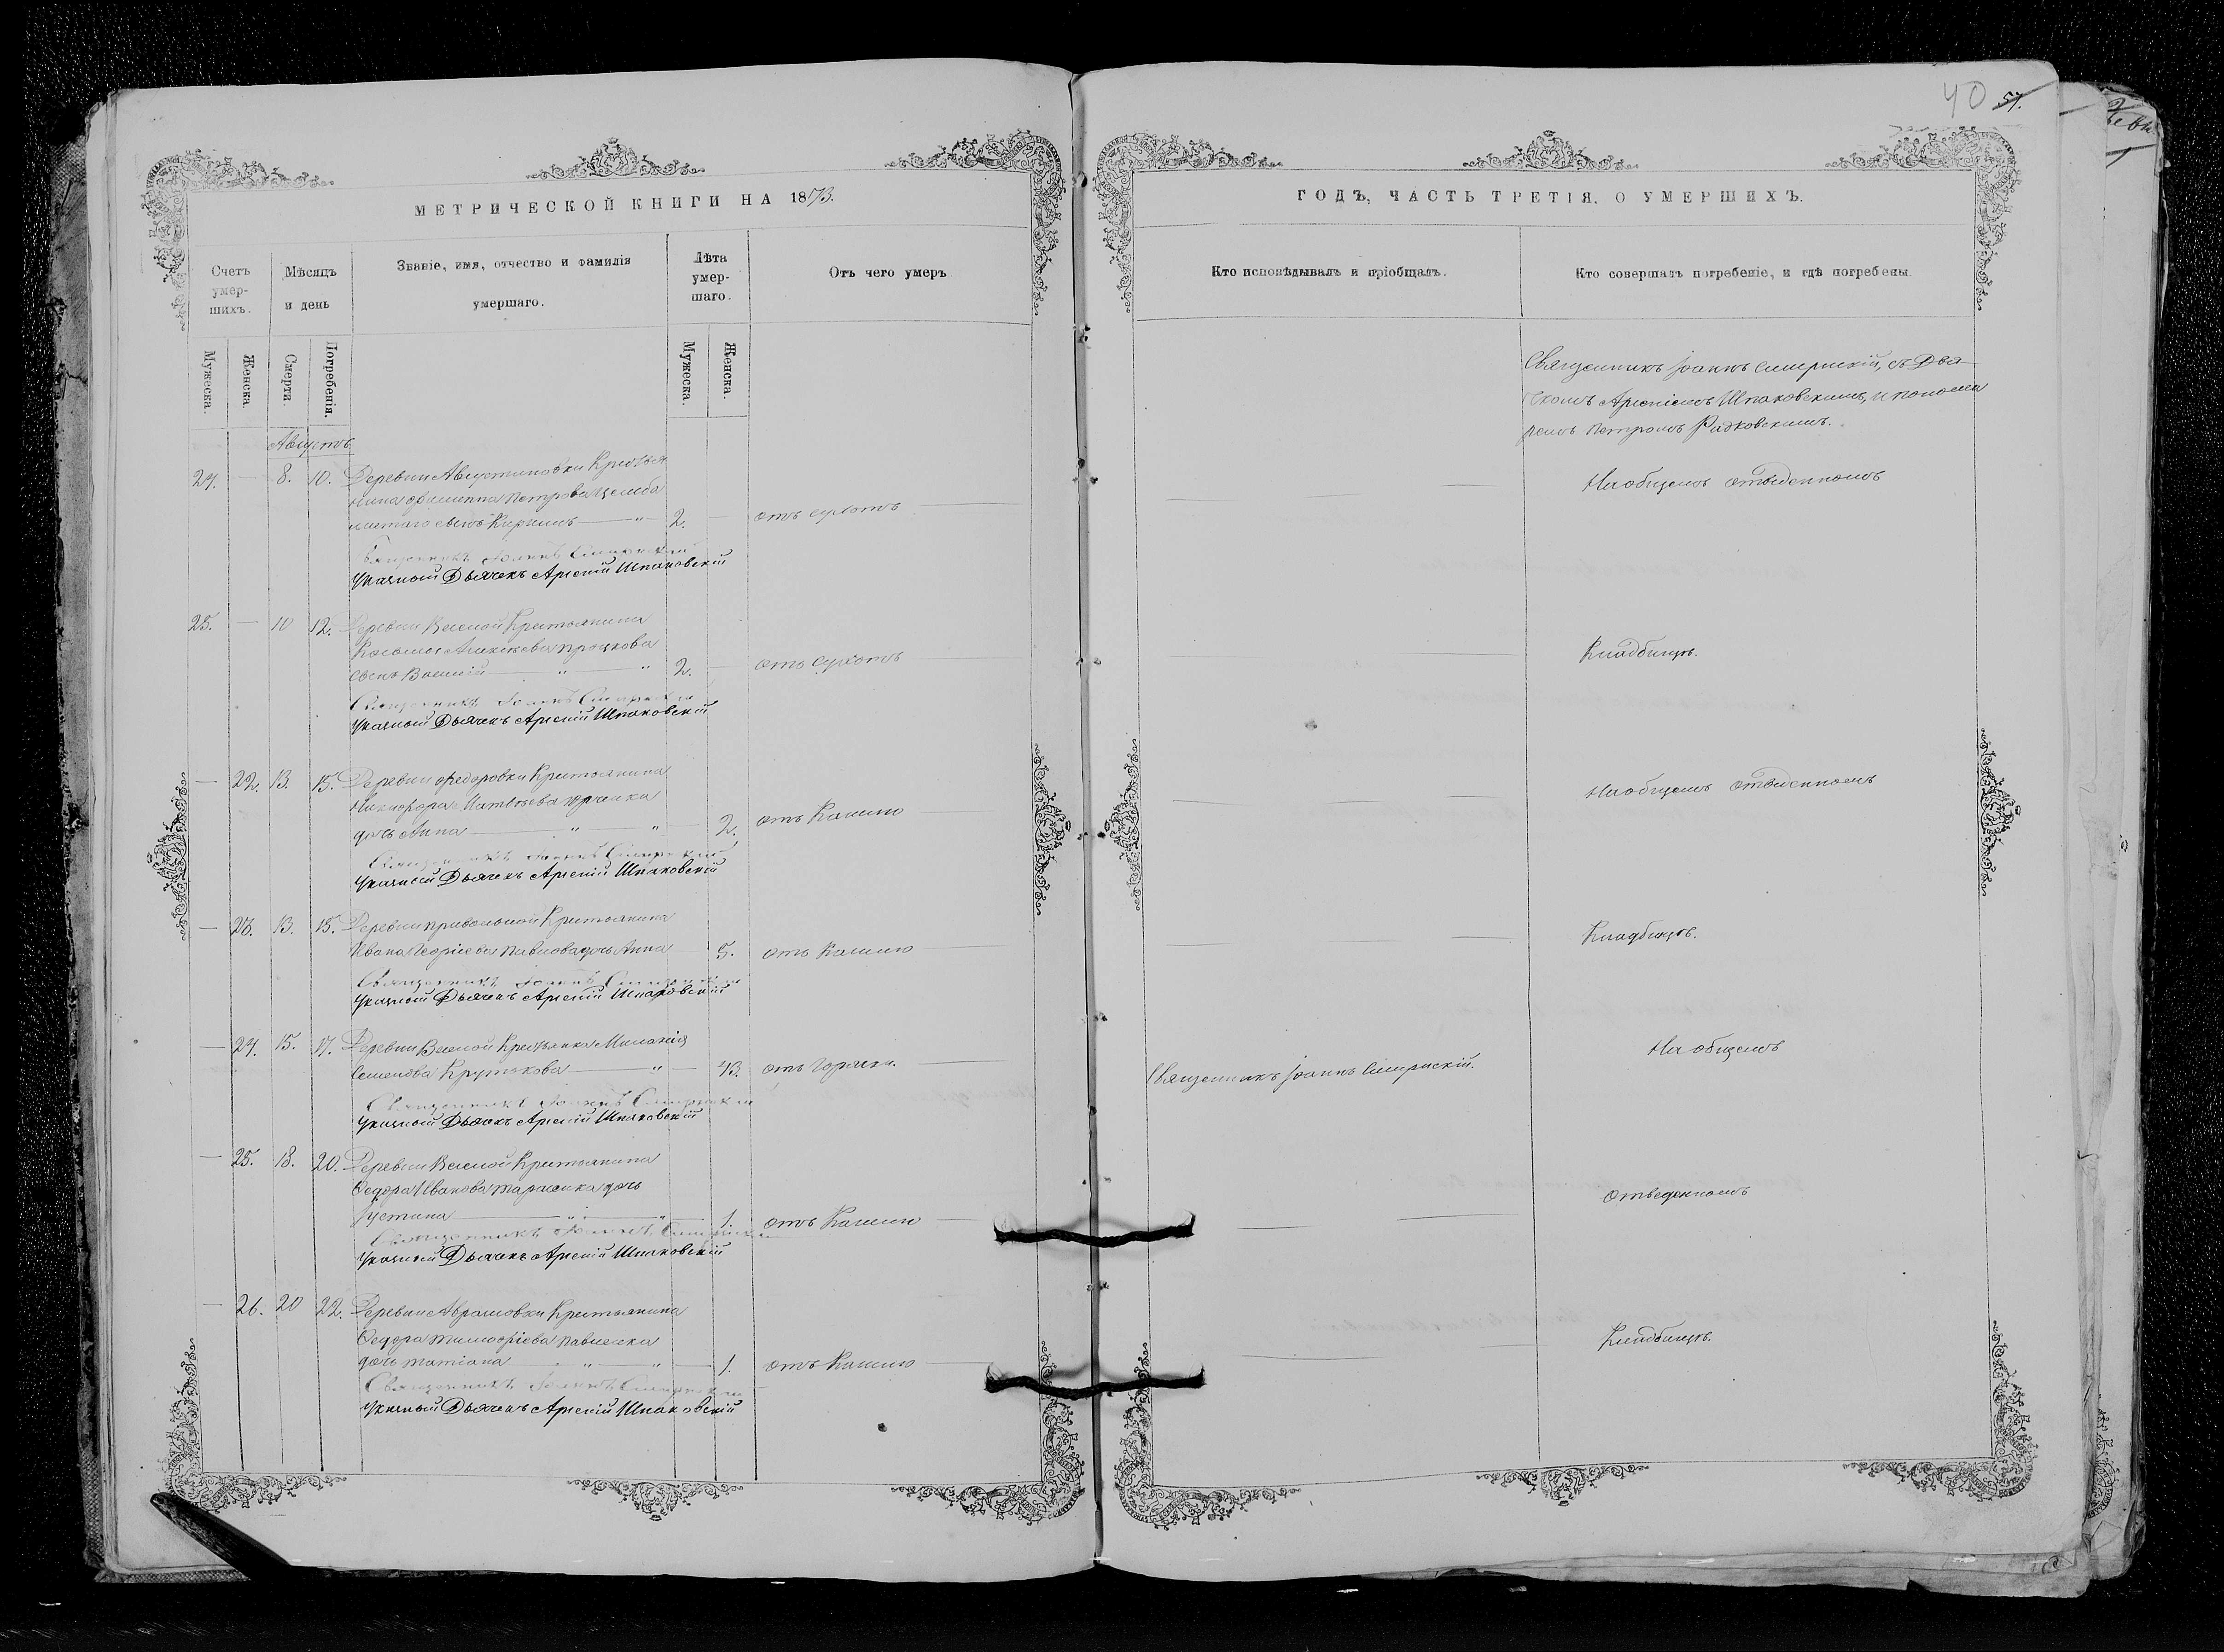 40 57.
МЕТРИЧЕСКОЙ КНИГИ НА 1873.
Счетъ умер-шихъ.
Мѣсяцъ и день
Званіе, имя, отчество и фамилія умершаго.
Лѣта умер-шаго.
Отъ чего умеръ
Мужеска.
Женска.
Смерти.
Погребенія.
Мужеска.
Женска.
Августъ
24. — 8. 10. Деревни Августиновки Крестья
нина Филиппа Петрова
сынъ Кирилъ — " — 2. — отъ сухотъ
Священникъ Іоаннъ
Указный Дьячекъ Арсеній Шпаковскій
25. — 10 12. Деревни Веселой Крестьянина
Косьмы Алексѣева
сынъ Василій — " — " 2. — отъ сухотъ
Священникъ Іоаннъ
Указный Дьячекъ Арсеній Шпаковскій
— 22. 13. 15. Деревни Федоровки Крестьянина
Никифора Матвѣева Юрченка
дочь Анна — " — " — 2. отъ Кашлю
Священникъ Іоаннъ
Указный Дьячекъ Арсеній Шпаковскій
— 23. 13. 15. Деревни Привольной Крестьянина
Ивана Георгіева Павлова дочь Анна — 5. отъ Кашлю
Священникъ Іоаннъ
Указный Дьячекъ Арсеній Шпаковскій
— 24. 15. 17. Деревни Веселой Крестьянка Миланія
Семенова Крутькова — " — 43. отъ Горячки.
Священникъ Іоаннъ
Указный Дьячекъ Арсеній Шпаковскій
— 25. 18. 20. Деревни Веселой Крестьянина
Федора Иванова Тарасенка дочь
Іустина — " — " — 1. отъ Кашлю
Священникъ Іоаннъ
Указный Дьячекъ Арсеній Шпаковскій
— 26. 20 22. Деревни Аврамовки Крестьянина
Федора Тимофіева Павленка
дочь Татіана — " — " — 1. отъ Кашлю
Священникъ Іоаннъ
Указный Дьячекъ Арсеній Шпаковскій
ГОДЪ, ЧАСТЬ ТРЕТІЯ, О УМЕРШИХЪ.
Кто исповѣдывалъ и пріобщалъ.
Кто совершалъ погребеніе, и гдѣ погребены.
Священникъ Іоаннъ съ Дья
чкомъ Арсеніемъ Шпаковскимъ, и понома
ремъ Петромъ Радковскимъ.
На общемъ отведенномъ
Кладбищѣ.
На общемъ отведенномъ
Кладбищѣ.
На общемъ
Священникъ Іоаннъ
отведенномъ
Кладбищѣ.